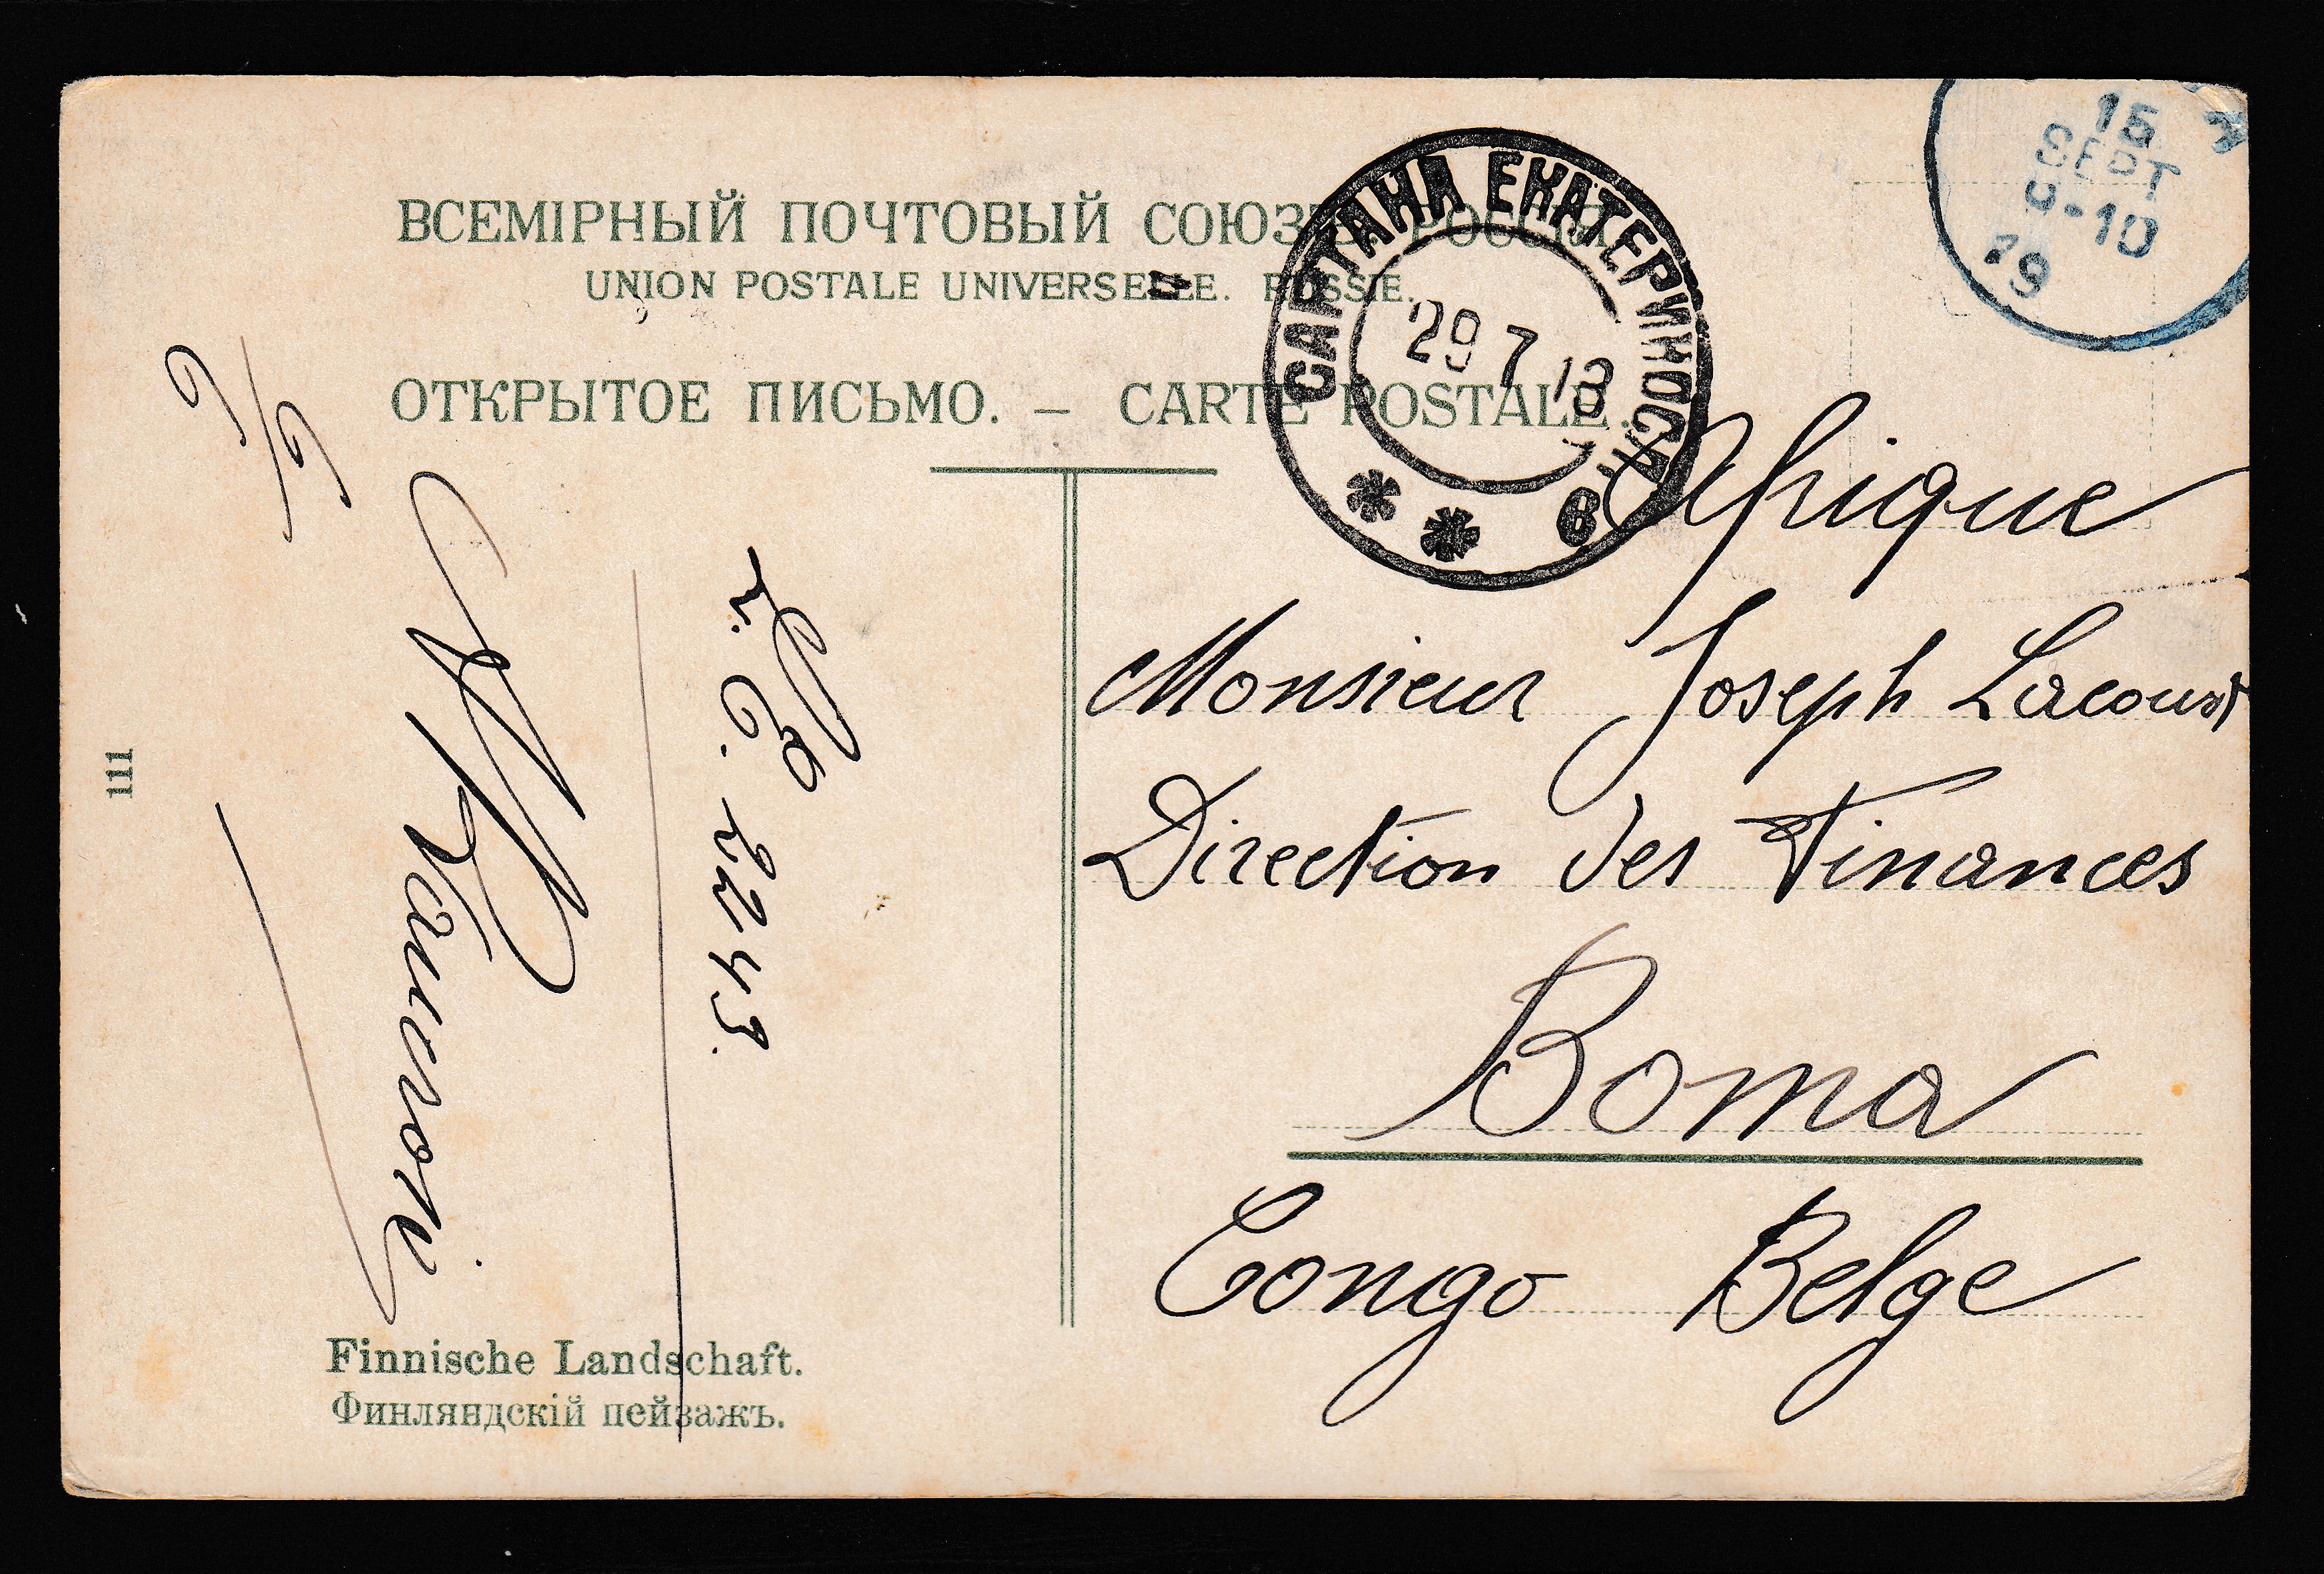 ВСЕМІРНЫЙ ПОЧТОВЫЙ СОЮЗЪ. РОССІЯ.
UNION POSTALE UNIVERSELLE. RUSSIE.
ОТКРЫТОЕ ПИСЬМО. — CARTE POSTALE.
САРТАНА ЕКАТЕРИНОСЛ.
29 7 13
15
SEPT
9-10
19
Afrique
Monsieur Joseph Lacourt
Direction des Finances
Boma
Congo Belge
2243.
111
Finnische Landschaft.
Финляндскій пейзажъ.